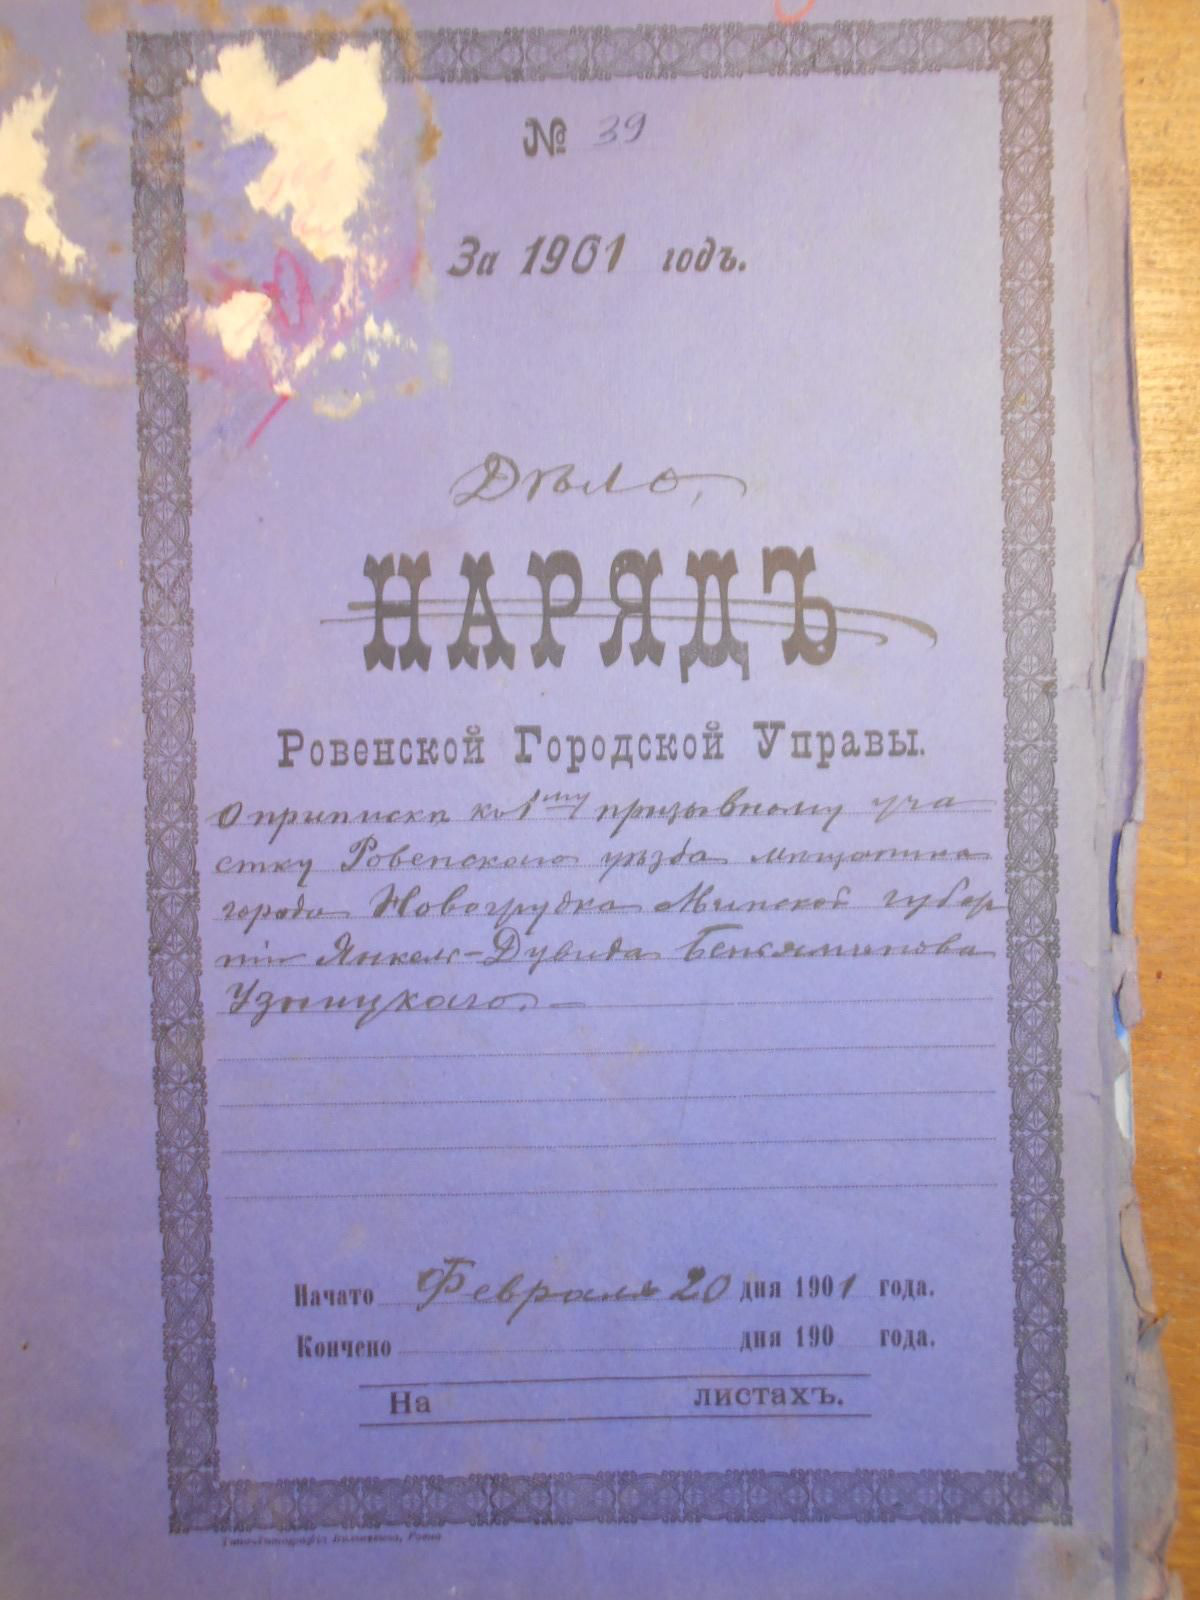 № 39
За 1901 годъ.
Дѣло,
НАРЯДЪ
Ровенской Городской Управы.
О припискѣ къ 1му призывному уча
стку Ровенскаго уѣзда мѣщанина
города Новогрудка Минской губер
ніи Янкель-Дувида Беньяминова
Узницкаго. —
Начато Февраля 20 дня 1901 года.
Кончено дня 190 года.
На листахъ.